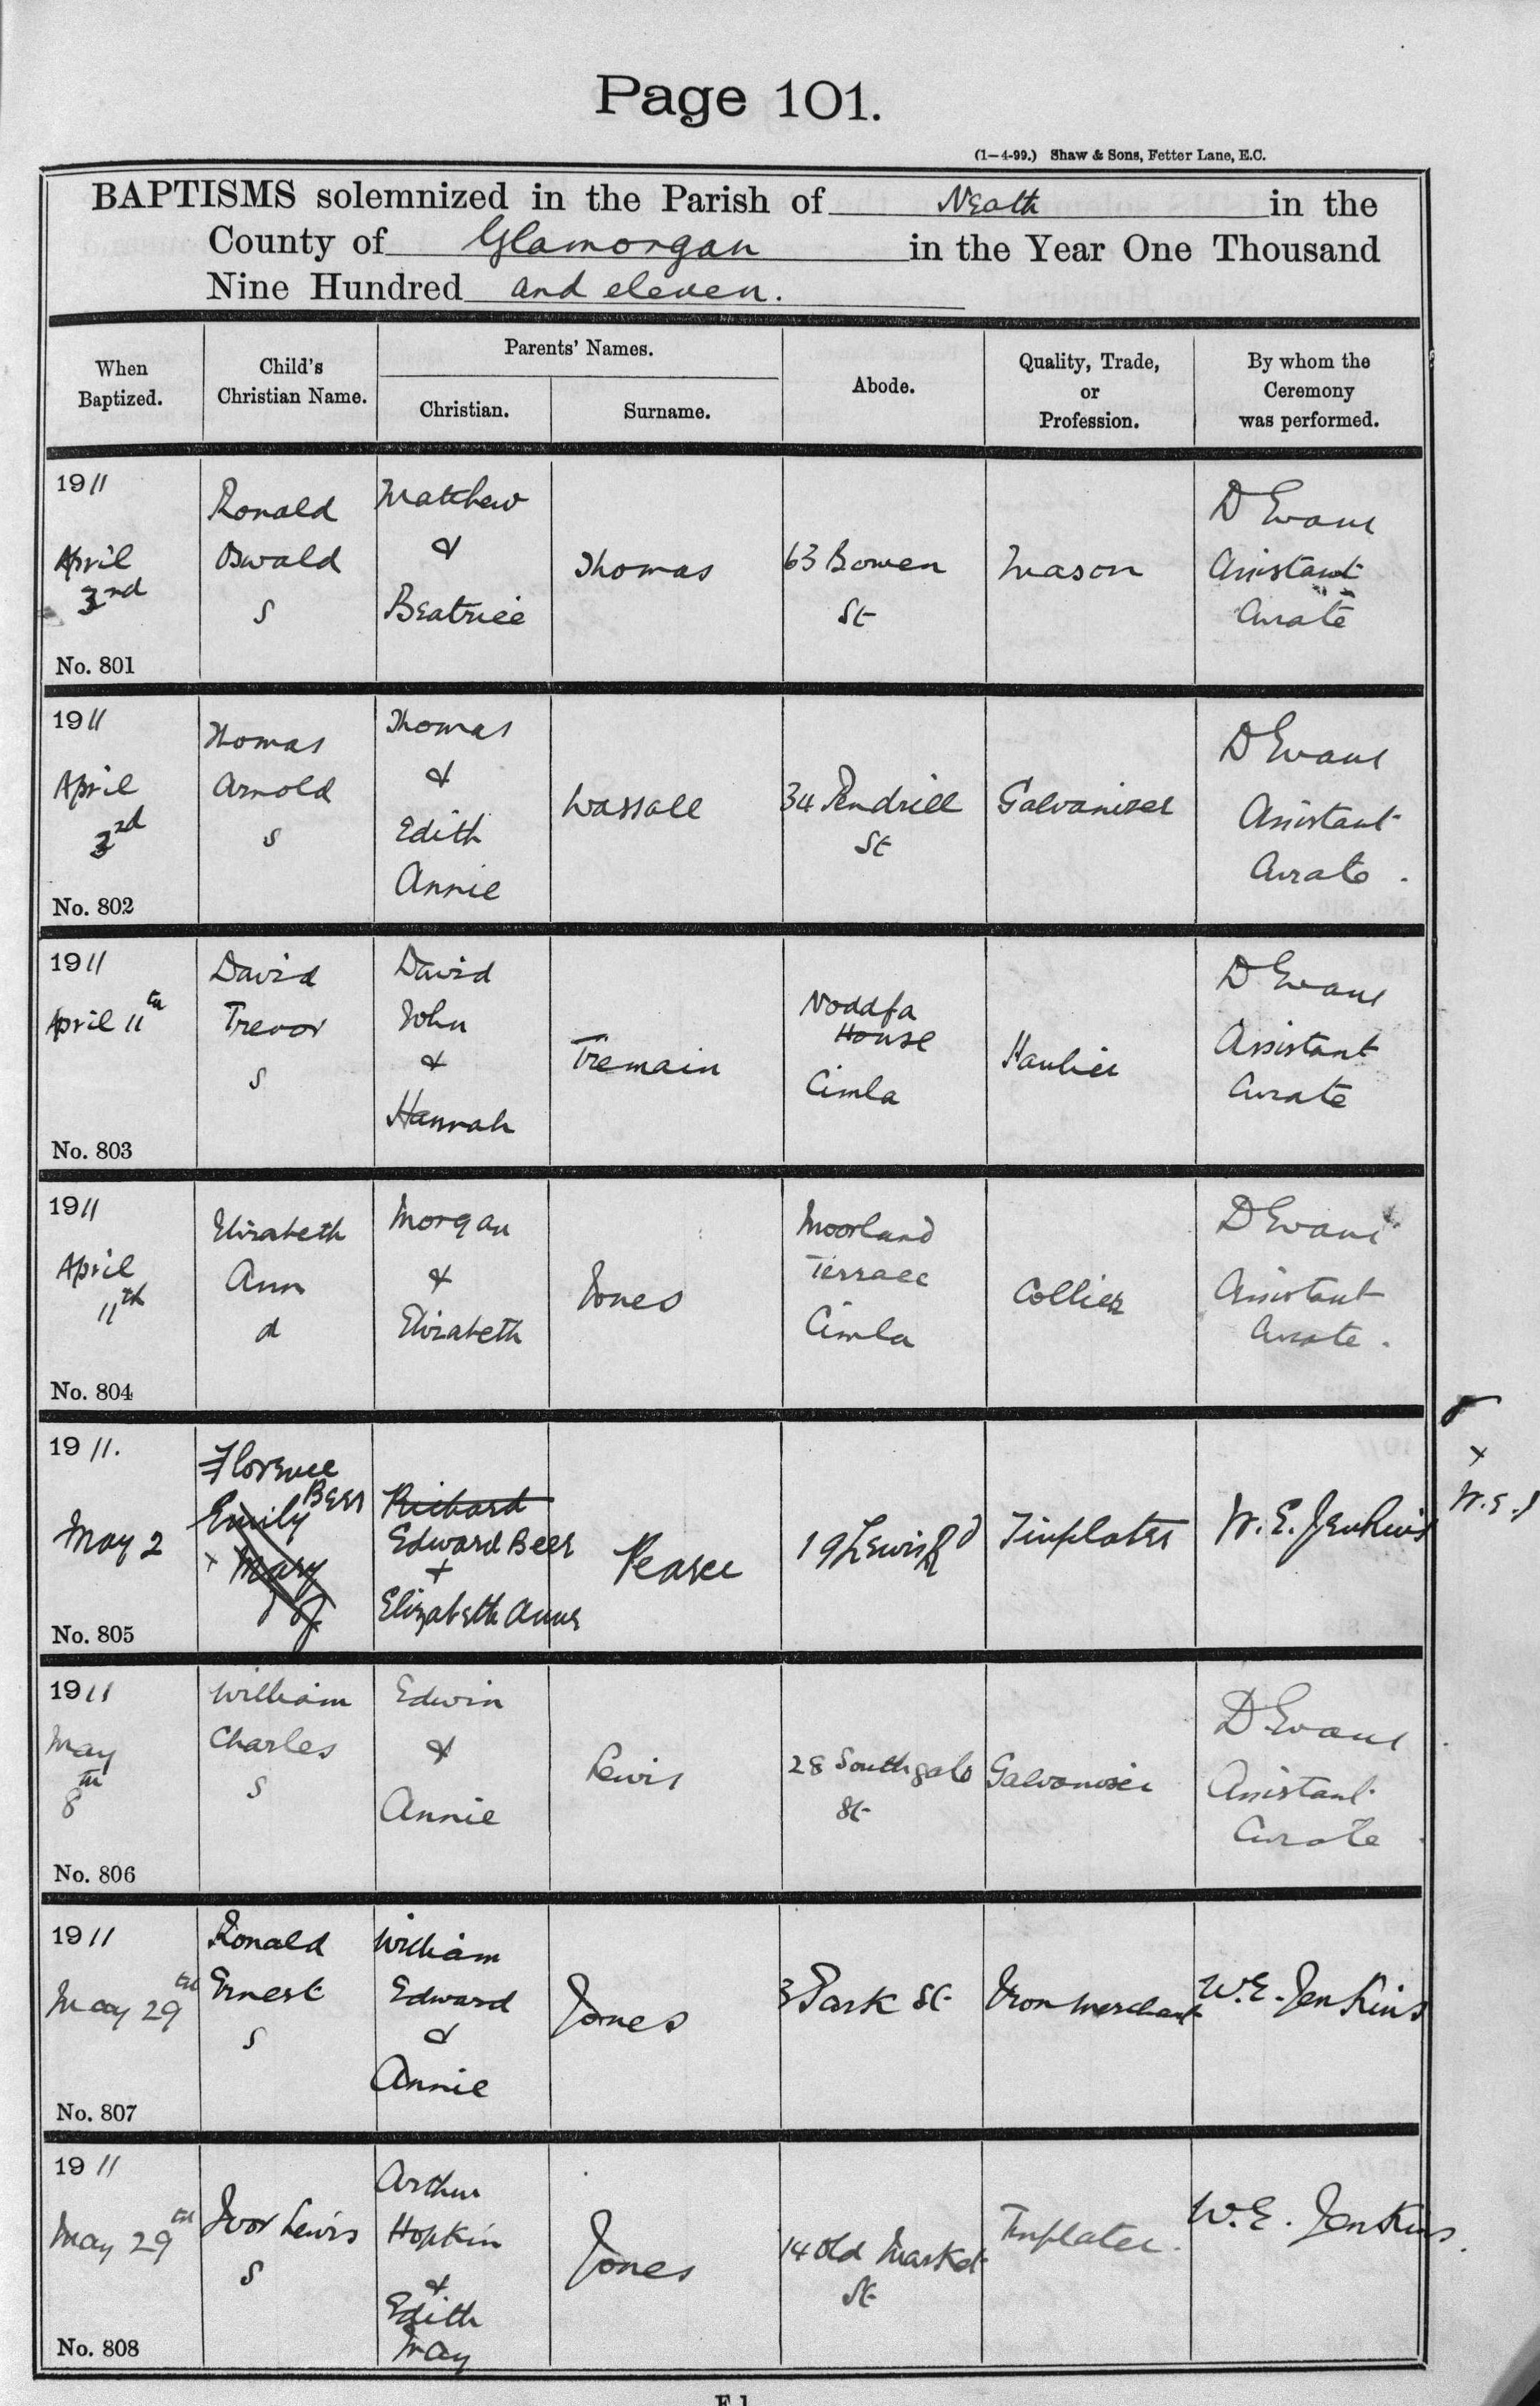 Page 101.
(1—4-99.) Shaw & Sons, Fetter Lane, E.C.
BAPTISMS solemnized in the Parish of Neath in the
County of Glamorgan in the Year One Thousand
Nine Hundred and eleven.
When Baptized.
Child's Christian Name.
Parents' Names.
Christian.
Surname.
Abode.
Quality, Trade, or Profession.
By whom the Ceremony was performed.
1911
April
3rd
No. 801
Ronald
Oswald
S
Matthew
&
Beatrice
Thomas
63 Bowen
St
Mason
D Evans
Assistant
Curate
1911
April
3rd
No. 802
Thomas
Arnold
S
Thomas
&
Edith
Annie
Wassall
34 Pendrill
St
Galvanizer
D Evans
Assistant
Curate.
1911
April 11th
No. 803
David
Trevor
S
David
John
&
Hannah
Tremain
Noddfa
House
Cimla
Haulier
D Evans
Assistant
Curate
1911
April
11th
No. 804
Elizabeth
Ann
d
Morgan
&
Elizabeth
Jones
Moorland
Terrace
Cimla
Collier
D Evans
Assistant
Curate.
1911.
May 2
No. 805
Florence
Beer
Emily
x Mary
Richard
Edward Beer
+
Elizabeth Anne
Pearce
19 Lewis Rd
Tinplater
W. E. Jenkins
x
W.E.J
1911
May
8th
No. 806
William
Charles
S
Edwin
&
Annie
Lewis
28 Southgate
St
Galvaniser
D Evans
Assistant
Curate.
1911
May 29th
No. 807
Ronald
Ernest
S
William
Edward
&
Annie
Jones
3 Park St
Iron Merchant
W. E. Jenkins
1911
May 29th
No. 808
Ivor Lewis
S
Arthur
Hopkin
&
Edith
May
Jones
14 Old Market
St
Tinplater.
W. E. Jenkins.
F 1